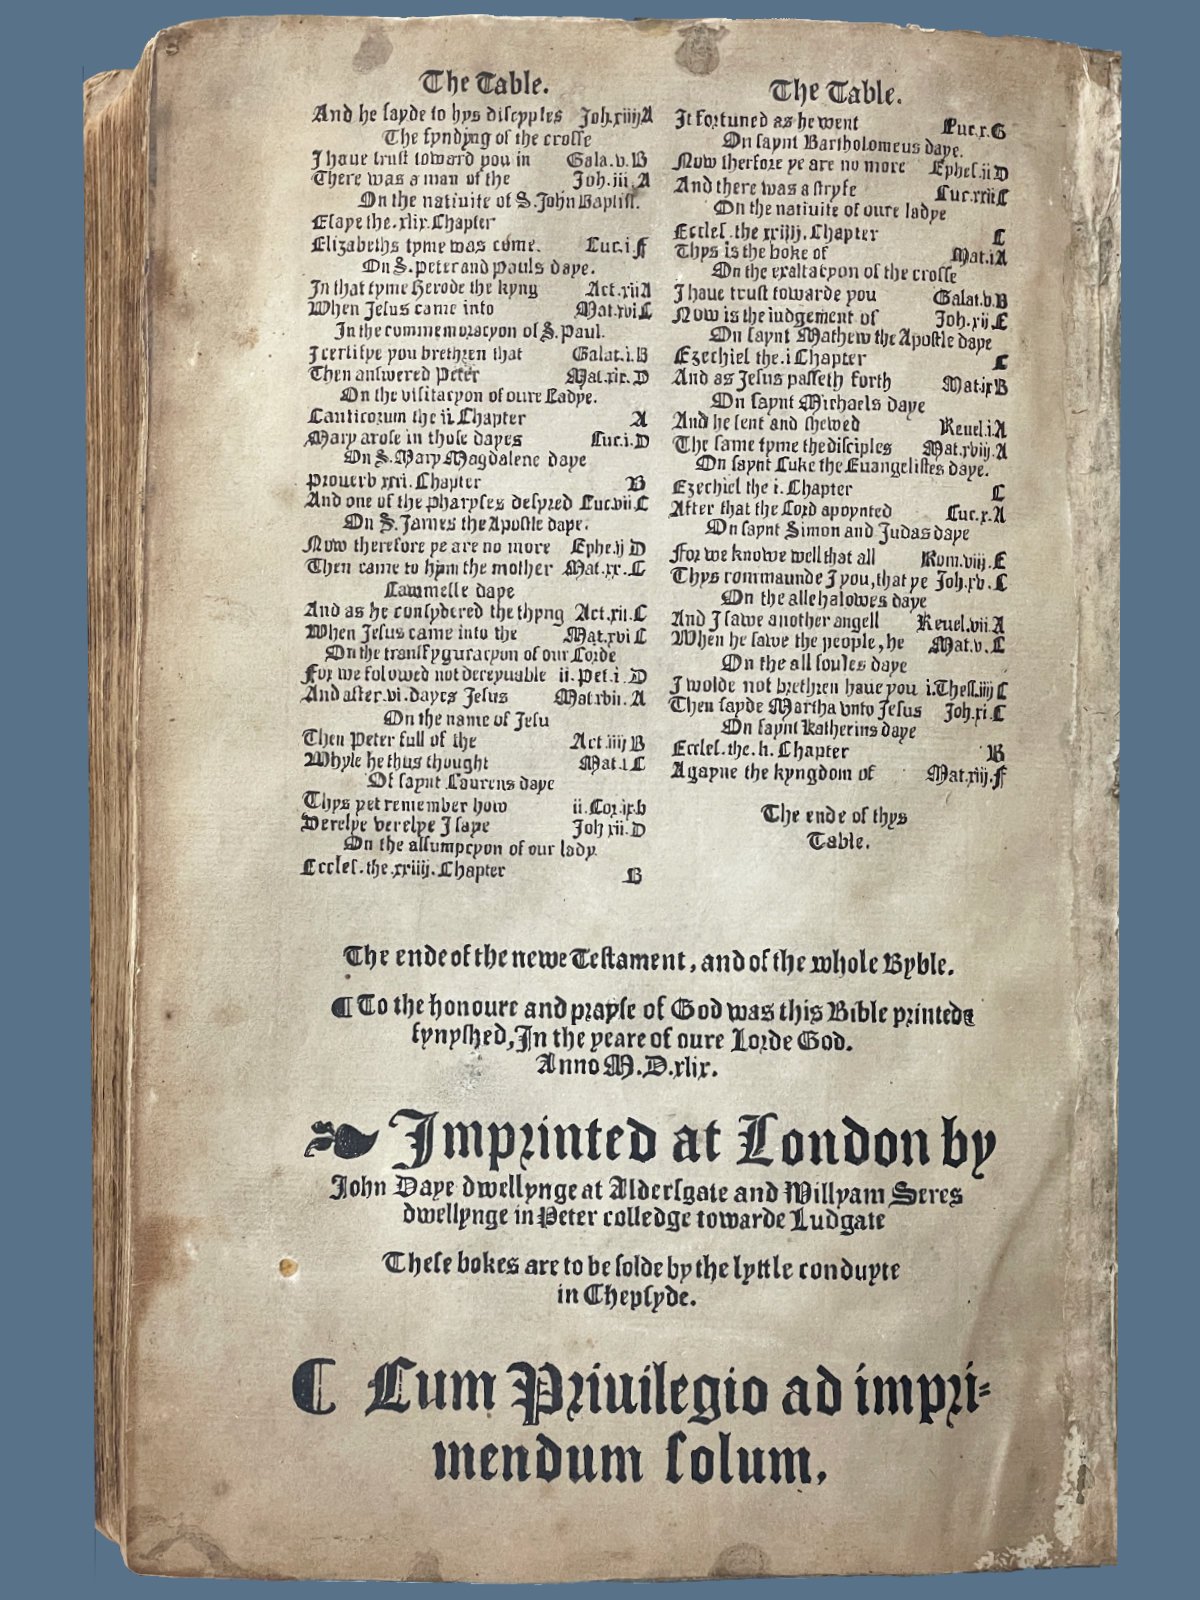 The Table.
And he sayde to hys discyples Joh.xiiij A
The fyndyng of the crosse
I haue trust toward you in Gala.v.B
There was a man of the Joh.iii.A
On the natiuite of S.John Baptist.
Esaye the.xlix.Chapter
Elizabeths tyme was come. Luc.i.F
On S.Peter and Pauls daye.
In that tyme Herode the kyng Act.xii A
When Jesus came into Mat.xvi C
In the commemoracyon of S.Paul.
I certifye you brethren that Galat.i.B
Then answered Peter Mat.xix.D
On the visitacyon of oure Ladye.
Canticorum the ii.Chapter A
Mary arose in those dayes Luc.i.D
On S.Mary Magdalene daye
Prouerb xxxi.Chapter B
And one of the pharyses desyred Luc.vii C
On S.James the Apostle daye.
Now therefore ye are no more Ephe.ij D
Then came to hym the mother Mat.xx.C
Lammesse daye
And as he consydered the thyng Act.xii.C
When Jesus came into the Mat.xvi C
On the transfyguracyon of our Lorde
For we folowed not deceyuable ii.Pet.i.D
And after.vi.dayes Jesus Mat.xvii.A
On the name of Jesu
Then Peter full of the Act.iiij B
Whyle he thus thought Mat.i C
Of saynt Laurens daye
Thys yet remember how ii.Cor.ix.b
Verelye verelye I saye Joh xii.D
On the assumpcyon of our lady.
Eccles.the.xxiiij.Chapter B
The Table.
It fortuned as he went Luc.x.G
On saynt Bartholomeus daye.
Now therfore ye are no more Ephes.ii D
And there was a stryfe Luc.xxii C
On the natiuite of oure ladye
Eccles.the xxiiij.Chapter C
Thys is the boke of Mat.i A
On the exaltacyon of the crosse
I haue trust towarde you Galat.v.B
Now is the iudgement of Joh.xij.E
On saynt Mathew the Apostle daye
Ezechiel the.i Chapter C
And as Jesus passeth forth Mat.ix B
On saynt Michaels daye
And he sent and shewed Reuel.i.A
The same tyme the disciples Mat.xviij.A
On saynt Luke the Euangelistes daye.
Ezechiel the i.Chapter C
After that the Lord apoynted Luc.x.A
On saynt Simon and Judas daye
For we knowe well that all Rom.viij.E
Thys commaunde I you,that ye Joh.xv.C
On the allehalowes daye
And I sawe another angell Reuel.vii.A
When he sawe the people,he Mat.v.C
On the all soules daye
I wolde not brethren haue you i.Thess.iiij C
Then sayde Martha vnto Jesus Joh.xi.C
On saynt Katherins daye
Eccles.the.li.Chapter B
Agayne the kyngdom of Mat.xiij.F
The ende of thys
Table.
The ende of the newe Testament, and of the whole Byble.
¶ To the honoure and prayse of God was this Bible printed &
fynyshed, In the yeare of oure Lorde God.
Anno M.D.xlix.
❧ Imprinted at London by
John Daye dwellynge at Aldersgate and Willyam Seres
dwellynge in Peter colledge towarde Ludgate
These bokes are to be solde by the lyttle conduyte
in Chepsyde.
¶ Cum Priuilegio ad impri-
mendum solum.